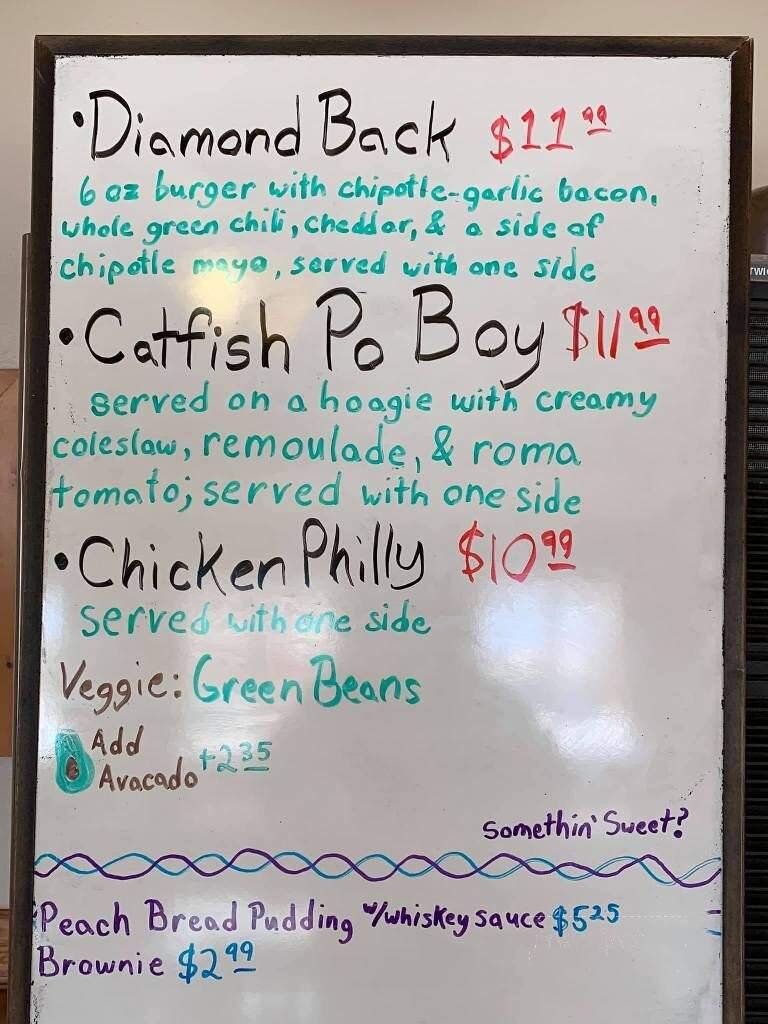 • Diamond Back $11.99
6 oz burger with chipotle-garlic bacon,
whole green chili, cheddar, & a side of
chipotle mayo, served with one side
• Catfish Po Boy $11.99
served on a hoagie with creamy
coleslaw, remoulade, & roma
tomato; served with one side
• Chicken Philly $10.99
served with one side
Veggie: Green Beans
Add
Avacado +2.35
Somethin' Sweet?
Peach Bread Pudding w/whiskey sauce $5.25
Brownie $2.99